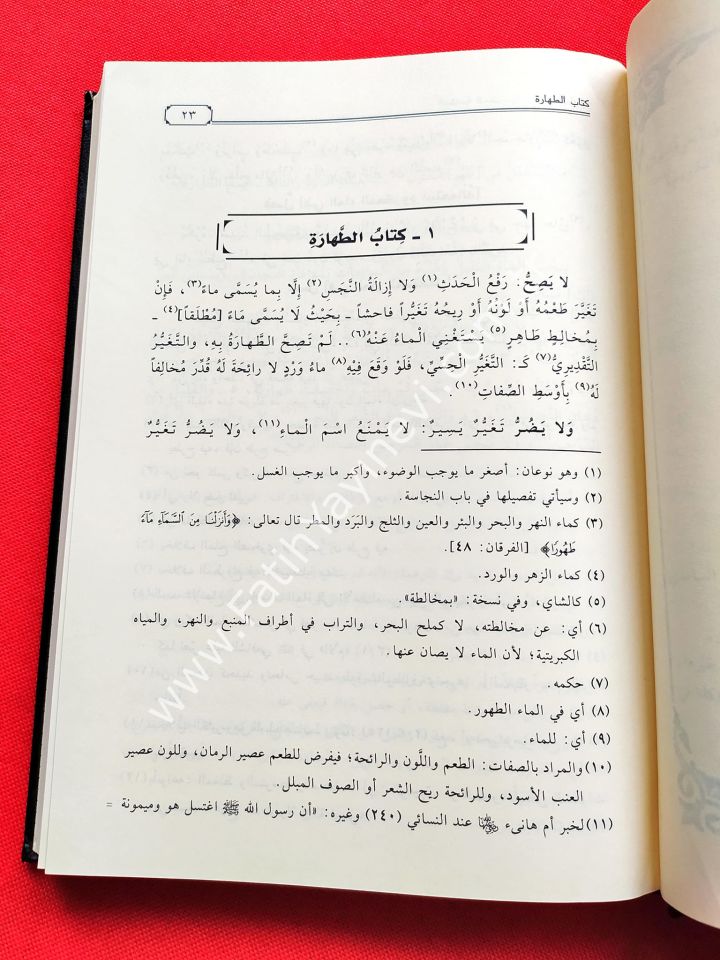 كتاب الطهارة
٢٣
١ - كِتابُ الطَّهارَةِ
لا يَصِحُّ: رَفْعُ الْحَدَثِ(١) وَلا إِزالَةُ النَّجَسِ(٢) إِلَّا بِما يُسَمَّى ماءً(٣)، فَإِنْ
تَغَيَّرَ طَعْمُهُ أَوْ لَوْنُهُ أَوْ رِيحُهُ تَغَيُّراً فاحشاً ـ بِحَيْثُ لَا يُسَمَّى مَاءً [مُطْلَقاً](٤) ـ
بِمُخالِطٍ طَاهِرٍ(٥) يَسْتَغْنِي الْماءُ عَنْهُ(٦).. لَمْ تَصِحَّ الطَّهارَةُ بِهِ، والتَّغَيُّرُ
التَّقْدِيرِيُّ(٧) كَـ: التَّغَيُّرِ الْحِسِّيِّ، فَلَوْ وَقَعَ فِيْهِ(٨) ماءُ وَرْدٍ لا رائِحَةَ لَهُ قُدِّرَ مُخالِفاً
لَهُ(٩) بِأَوْسَطِ الصِّفاتِ(١٠).
وَلا يَضُرُّ تَغَيُّرٌ يَسِيرٌ: لا يَمْنَعُ اسْمَ الْماءِ(١١)، وَلا يَضُرُّ تَغَيُّرٌ
(١) وهو نوعان: أصغر ما يوجب الوضوء، وأكبر ما يوجب الغسل.
(٢) وسيأتي تفصيلها في باب النجاسة.
(٣) كماء النهر والبحر والبئر والعين والثلج والبَرَد والمطر قال تعالى: ﴿وَأَنزَلْنَا مِنَ السَّمَآءِ مَآءً
طَهُورًا﴾ [الفرقان: ٤٨].
(٤) كماء الزهر والورد.
(٥) كالشاي، وفي نسخة: «بمخالطة».
(٦) أي: عن مخالطته، لا كملح البحر، والتراب في أطراف المنبع والنهر، والمياه
الكبريتية؛ لأن الماء لا يصان عنها.
(٧) حكمه.
(٨) أي في الماء الطهور.
(٩) أي: للماء.
(١٠) والمراد بالصفات: الطعم واللَّون والرائحة؛ فيفرض للطعم عصير الرمان، وللون عصير
العنب الأسود، وللرائحة ريح الشعر أو الصوف المبلل.
(١١) لخبر أم هانىء ﵂ عند النسائي (٢٤٠) وغيره: «أن رسول الله ﷺ اغتسل هو وميمونة =
www.Fatihyayinevi.com